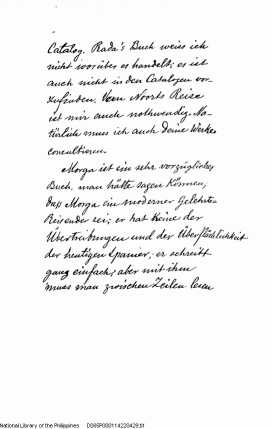 Catalog. Rada's Buch weiss ich
nicht worüber es handelt; es ist
auch nicht in den Catalogen vor-
zufinden. Van Noorts Reise
ist mir auch nothwendig. Na-
türlich muss ich auch deine Werke
consultieren.
Morga ist ein sehr vorzügliches
Buch, man hätte sagen können,
dass Morga ein moderner Gelehrte-
Reisender sei; er hat keine der
Übertreibungen und der Überflächlichkeit
der heutigen Spanier; er schreibt
ganz einfach; aber mit ihm
muss man zwischen Zeilen lesen
National Library of the Philippines